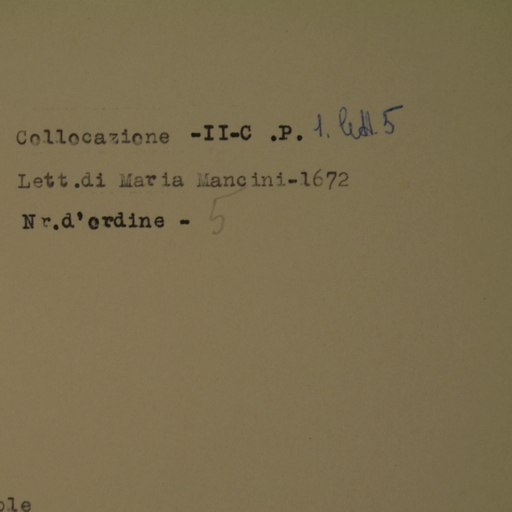 Collocazione -II-C .P. 1. lett. 5
Lett.di Maria Mancini-1672
Nr.d'ordine - 5
ole